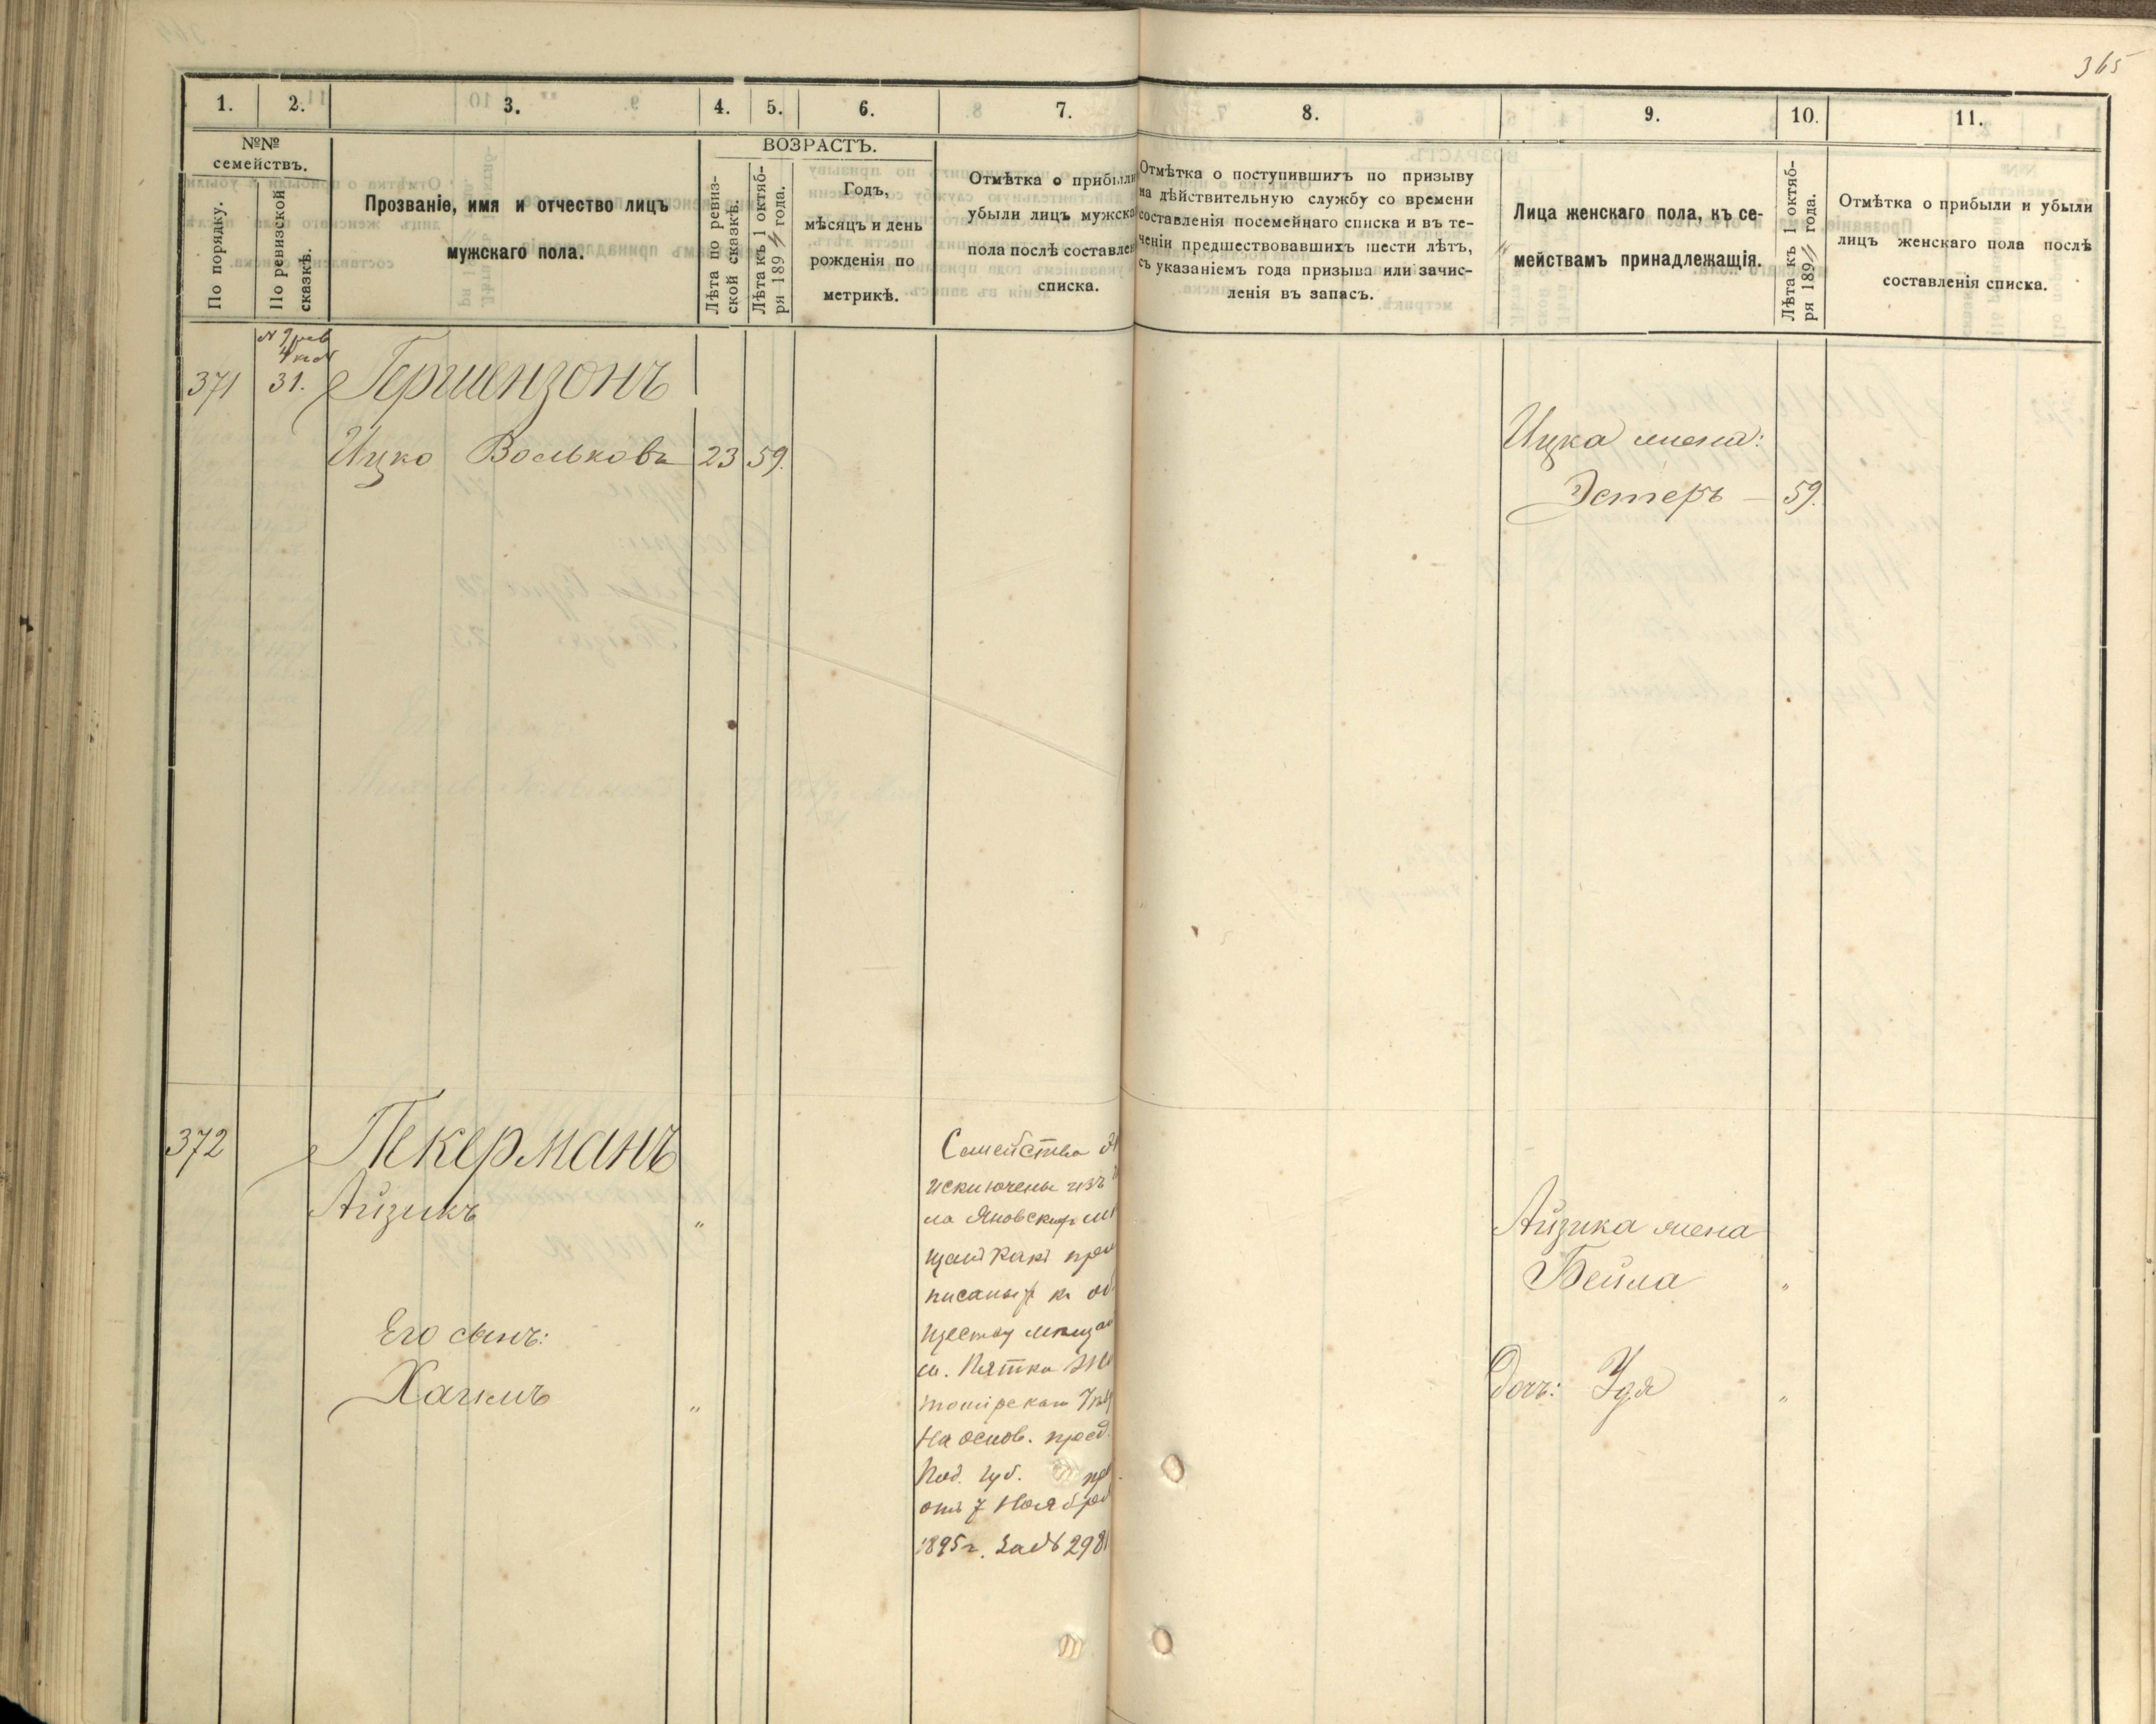 365
1. 2. 3. 4. 5. 6. 7. 8. 9. 10. 11.
№№ семействъ.
По порядку.
По ревизской сказкѣ.
Прозваніе, имя и отчество лицъ
мужскаго пола.
ВОЗРАСТЪ.
Лѣта по ревиз-
ской сказкѣ.
Лѣта къ 1 октяб-
ря 189 года.
Годъ,
мѣсяцъ и день
рожденія по
метрикѣ.
Отмѣтка о прибыли
убыли лицъ мужска
пола послѣ составлен
списка.
Отмѣтка о поступившихъ по призыву
на дѣйствительную службу со времени
составленія посемейнаго списка и въ те-
ченіи предшествовавшихъ шести лѣтъ,
съ указаніемъ года призыва или зачис-
ленія въ запасъ.
Лица женскаго пола, къ се-
мействамъ принадлежащія.
Лѣта къ 1 октяб-
ря 189 года.
Отмѣтка о прибыли и убыли
лицъ женскаго пола послѣ
составленія списка.
371 31. Гершензонъ
Ицко Вольковъ 23 59.
Ицка жена:
Эстеръ — 59.
372 Пекерманъ
Айзикъ "
Его сынъ:
Хаимъ "
Семейства
исключены изъ
ла Яновскихъ
щан какъ
писаныхъ къ об
ществу мещан
м. Пятки Жи
томірскаго
На основ. пред.
Под. губ.
отъ 7 Ноября
1895 г. за № 2981
Айзика жена
Бейла "
Дочь: Удя "